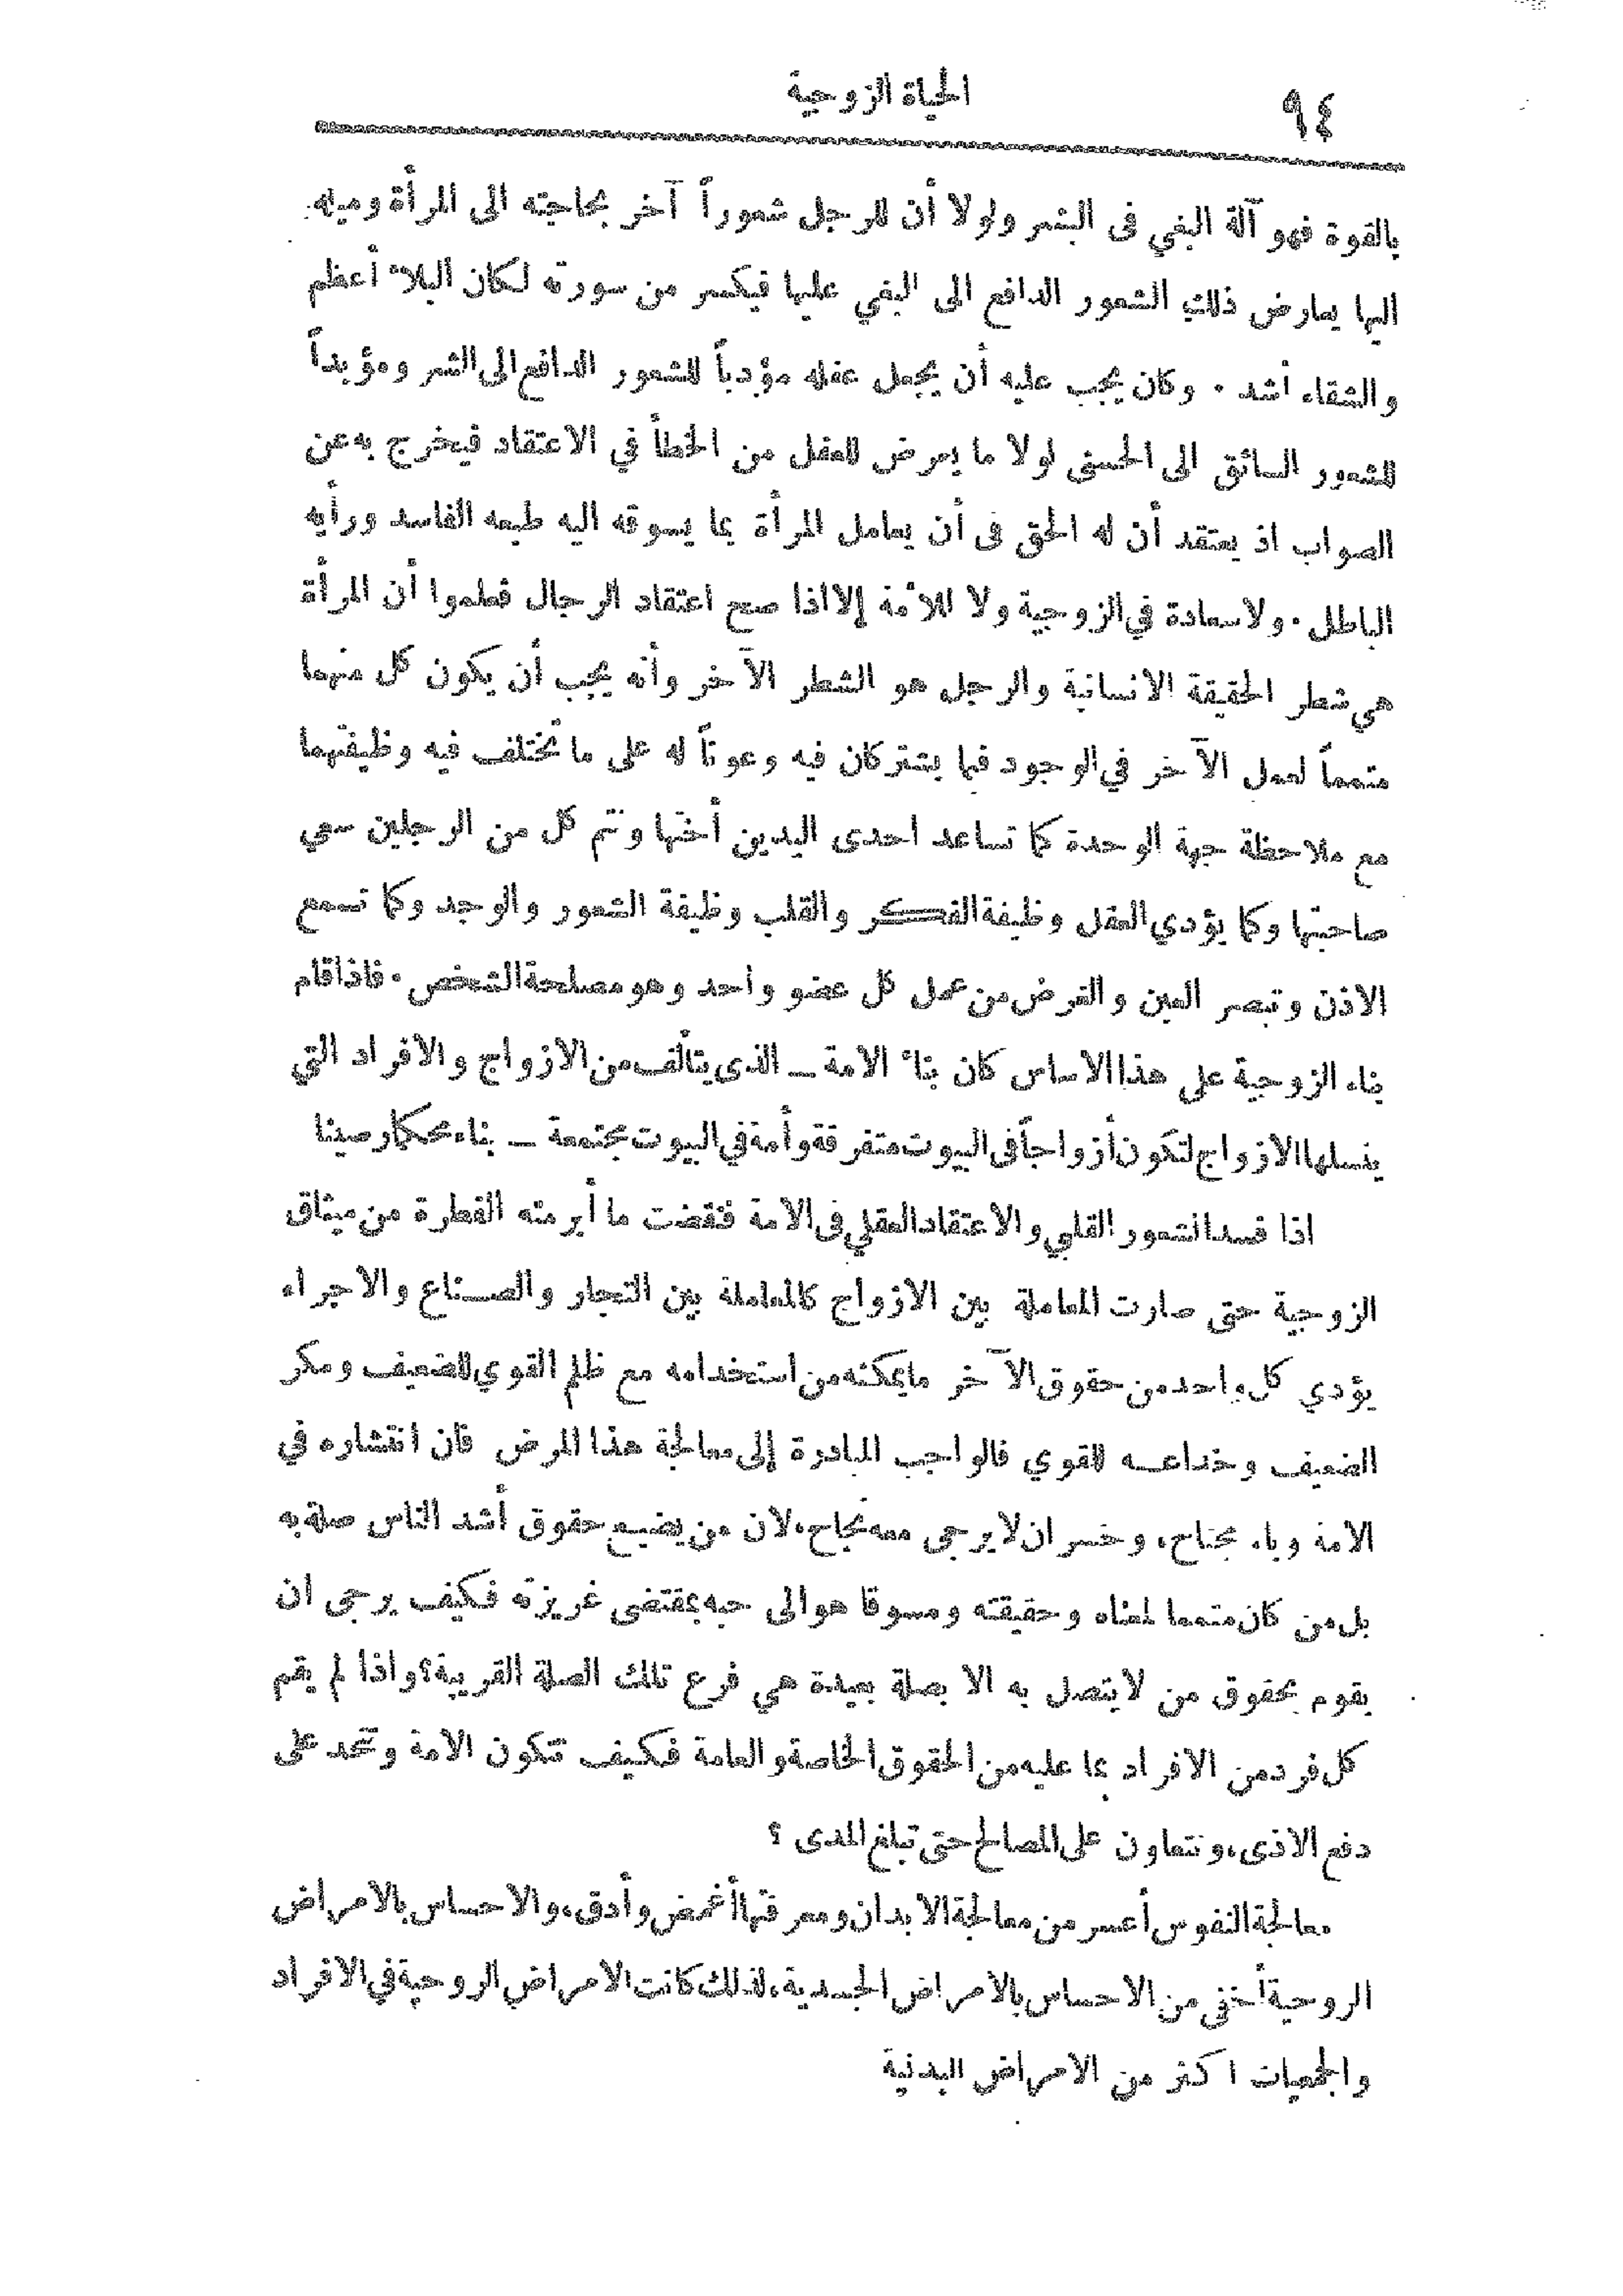 ٩٤
الحياة الزوجية
بالقوة فهو آلة البغي فى البشر ولولا أن للرجل شعوراً آخر بحاجته الى المرأة وميله
اليها يعارض ذلك الشعور الدافع الى البغي عليها فيكسر من سورته لكان البلاء أعظم
والشقاء أشد . وكان يجب عليه أن يجعل عقله مؤدباً للشعور الدافع الى الشر ومؤيداً
للشعور السائق الى الحسنى لولا ما يعرض للعقل من الخطأ في الاعتقاد فيخرج به عن
الصواب اذ يعتقد أن له الحق فى أن يعامل المرأة بما يسوقه اليه طبعه الفاسد ورأيه
الباطل . ولا سعادة في الزوجية ولا للأمة إلا اذا صح اعتقاد الرجال فعلموا أن المرأة
هي شطر الحقيقة الانسانية والرجل هو الشطر الآخر وأنه يجب أن يكون كل منهما
متمماً لعمل الآخر في الوجود فيما يشتركان فيه وعوناً له على ما تختلف فيه وظيفتهما
مع ملاحظة جهة الوحدة كما تساعد احدى اليدين أختها وتتم كل من الرجلين سعي
صاحبتها وكما يؤدي العقل وظيفة الفكر والقلب وظيفة الشعور والوجد وكما تسمع
الاذن وتبصر العين والغرض من عمل كل عضو واحد وهو مصلحة الشخص . فاذا قام
بناء الزوجية على هذا الاساس كان بناء الامة ــ الذى يتألف من الازواج والافراد التي
ينسلها الازواج لتكون أزواجاً فى البيوت متفرقة وأمة في البيوت مجتمعة ــ بناء محكما رصينا
اذا فسد الشعور القلبي والاعتقاد العقلي فى الامة فنقضت ما أبرمته الفطرة من ميثاق
الزوجية حتى صارت المعاملة بين الازواج كالمعاملة بين التجار والصناع والاجراء
يؤدي كل واحد من حقوق الآخر ما يمكنه من استخدامه مع ظلم القوي للضعيف ومكر
الضعيف وخداعه للقوي فالواجب المبادرة إلى معالجة هذا المرض فان انتشاره في
الامة وباء مجتاح، وخسران لا يرجى معه نجاح، لان من يضيع حقوق أشد الناس صلة به
بل من كان متمما لمعناه وحقيقته ومسوقا هو الى حبه بمقتضى غريزته فكيف يرجى ان
يقوم بحقوق من لا يتصل به الا بصلة بعيدة هي فرع تلك الصلة القريبة؟ واذا لم يقم
كل فرد من الافراد بما عليه من الحقوق الخاصة والعامة فكيف تتكون الامة وتتحد على
دفع الاذى، وتتعاون على المصالح حتى تبلغ المدى ؟
معالجة النفوس أعسر من معالجة الابدان ومعرفتها أغمض وأدق، والاحساس بالامراض
الروحية أخفى من الاحساس بالامراض الجسدية، لذلك كانت الامراض الروحية في الافراد
والجمعيات اكثر من الامراض البدنية